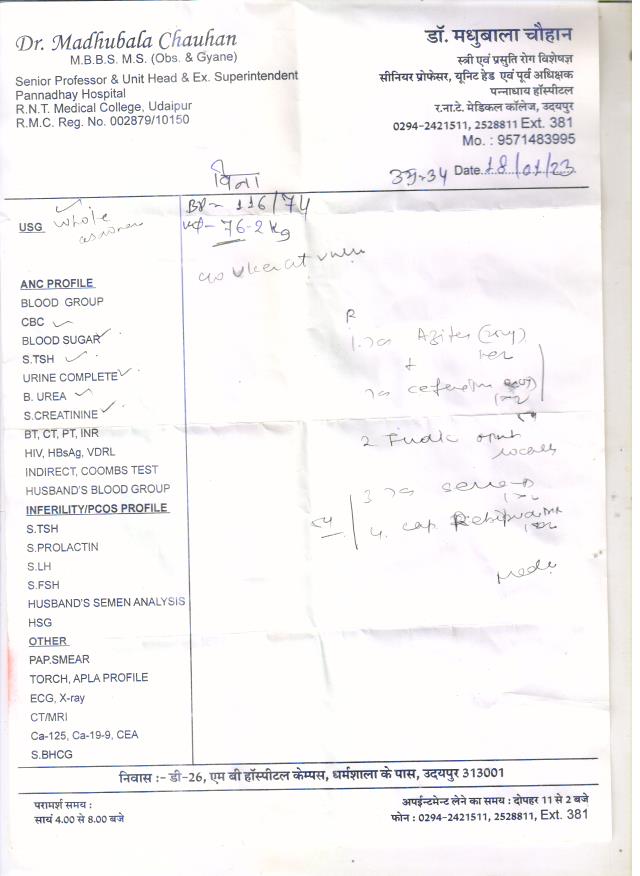 Dr. Madhubala Chauhan
M.B.B.S. M.S. (Obs. & Gyane)
Senior Professor & Unit Head & Ex. Superintendent
Pannadhay Hospital
R.N.T. Medical College, Udaipur
R.M.C. Reg. No. 002879/10150
डॉ. मधुबाला चौहान
स्त्री एवं प्रसुति रोग विशेषज्ञ
सीनियर प्रोफेसर, यूनिट हेड एवं पूर्व अधिक्षक
पन्नाधाय हॉस्पीटल
र.ना.टे. मेडिकल कॉलेज, उदयपुर
0294-2421511, 2528811 Ext. 381
Mo. : 9571483995
विना
उम्र-34 Date 18/01/23
BP- 116/74
76-2 kg
USG whole
ANC PROFILE
BLOOD GROUP
CBC
BLOOD SUGAR
S.TSH
URINE COMPLETE
B. UREA
S.CREATININE
BT, CT, PT, INR
HIV, HBsAg, VDRL
INDIRECT, COOMBS TEST
HUSBAND'S BLOOD GROUP
INFERILITY/PCOS PROFILE
S.TSH
S.PROLACTIN
S.LH
S.FSH
HUSBAND'S SEMEN ANALYSIS
HSG
OTHER
PAP.SMEAR
TORCH, APLA PROFILE
ECG, X-ray
CT/MRI
Ca-125, Ca-19-9, CEA
S.BHCG
R
1.
+
2
3
4. cap
निवास :- डी-26, एम बी हॉस्पीटल केम्पस, धर्मशाला के पास, उदयपुर 313001
परामर्श समय :
सायं 4.00 से 8.00 बजे
अपईन्टमेन्ट लेने का समय : दोपहर 11 से 2 बजे
फोन : 0294-2421511, 2528811, Ext. 381